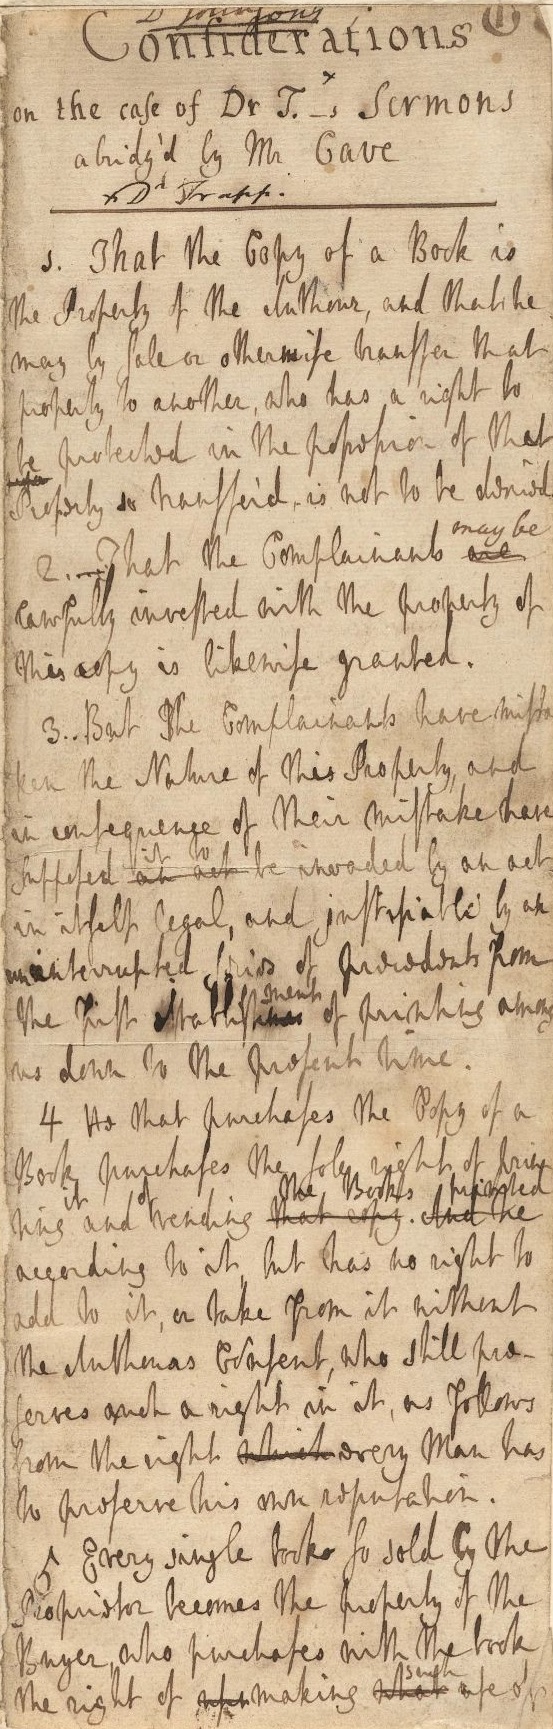 Dr Johnsons
Considerations
on the case of Dr T.—s Sermons
abridg'd by Mr Cave
x Dr Trapp.
1. That the Copy of a Book is
the Property of the Authour, and that he
may by sale or otherwise transfer that
property to another, who has a right to
be protected in the possession of that
Property so transfer'd, is not to be denied
2. That the Complainants may be are
lawfully invested with the property of
this copy is likewise granted.
3. But the Complainants have mista
ken the Nature of this Property, and
in consequence of their mistake have
supposed it to an act be invaded by an act
in itself legal, and justifiable by an
uninterrupted series of precedents from
the first establishment of printing among
us down to the present time.
4 He that purchases the Copy of a
Book purchases the sole right of prin
ting it and of vending the Books printed that copy. And he
according to it, but has no right to
add to it, or take from it without
the Authours Consent, who still pre-
serves such a right in it, as follows
from the right which every Man has
to preserve his own reputation.
5 Every single book so sold by the
Proprietor becomes the property of the
Buyer, who purchases with the book
the right of making such what use of